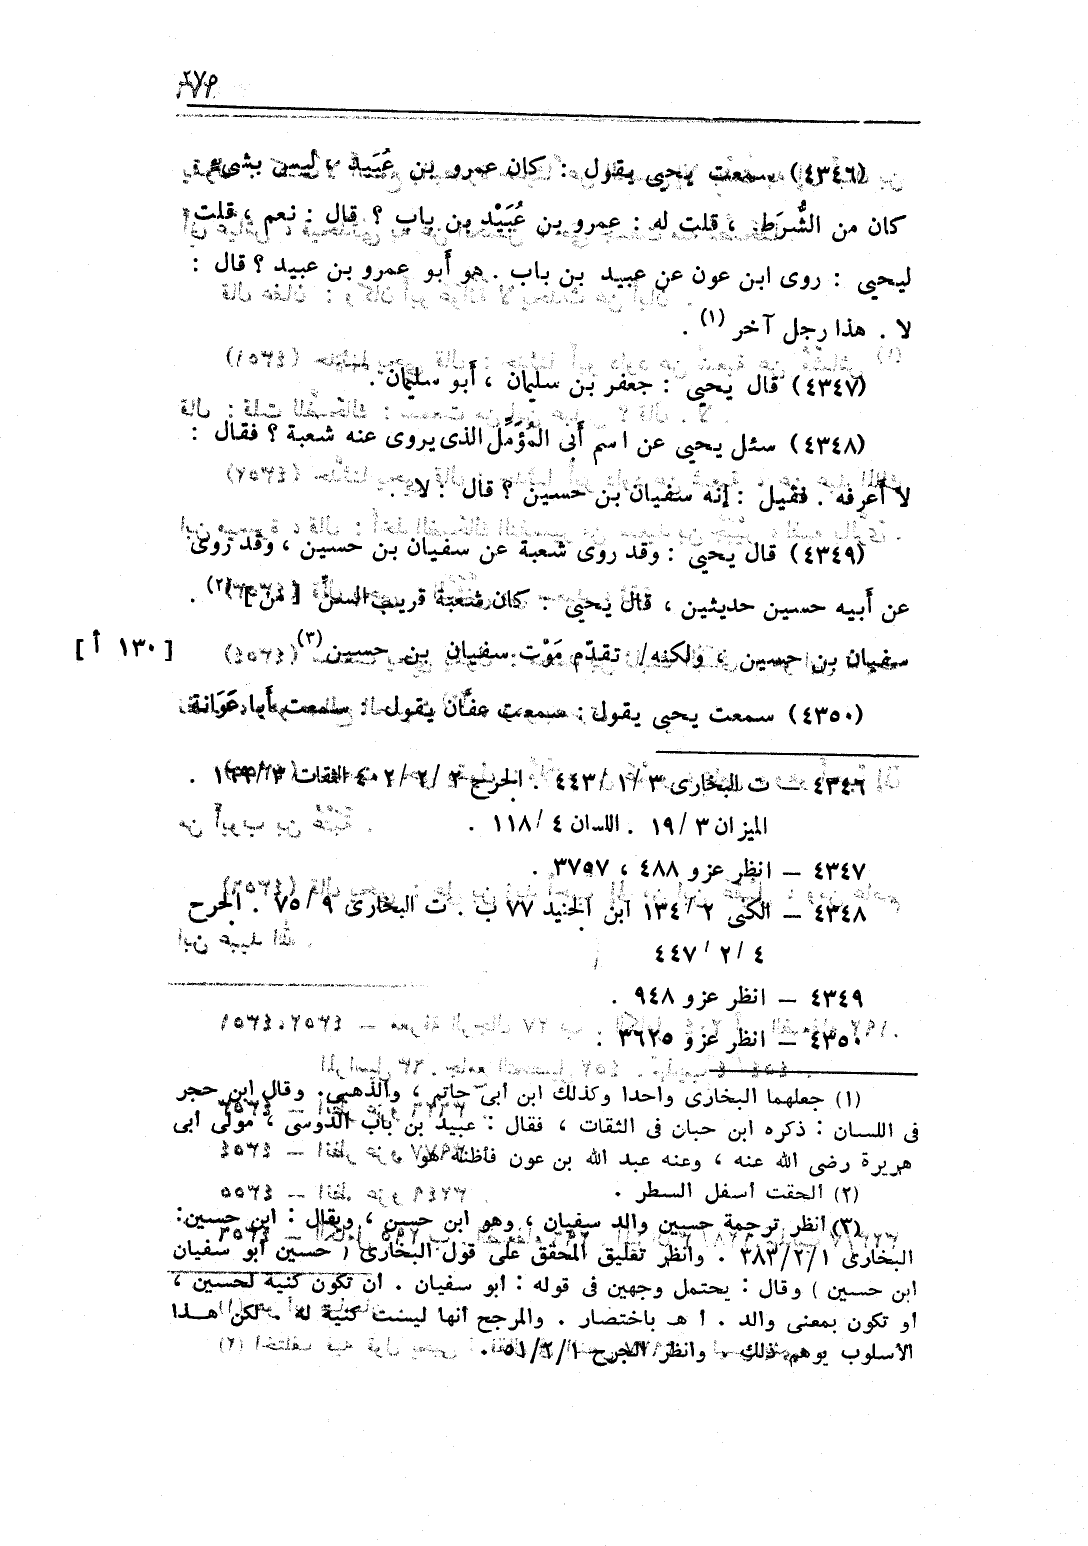 ٢٧٩
(٤٣٤٦) سمعت يحيى يقول : كان عمرو بن عُبَيد ، ليس بشىء
كان من الشُّرَط ، قلت له : عمرو بن عُبَيْد بن باب ؟ قال : نعم ، قلت
ليحيى : روى ابن عون عن عبيد بن باب . هو أَبو عمرو بن عبيد ؟ قال :
لا . هذا رجل آخر (١) .
(٤٣٤٧) قال يحيى : جعفر بن سليمان ، أَبو سليمان .
(٤٣٤٨) سئل يحيى عن اسم أَبى المُؤَمَّل الذى يروى عنه شعبة ؟ فقال :
لا أَعرفه . فقيل : إنه سفيان بن حسين ؟ قال : لا .
(٤٣٤٩) قال يحيى : وقد روى شعبة عن سفيان بن حسين ، وقد روى
عن أَبيه حسين حديثين ، قال يحيى : كان شعبة قريب السنّ [ من ] (٢) .
سفيان بن حسين ، ولكنه/ تقدّم مَوْت سفيان بن حسين (٣) [ ١٣٠ أ ]
(٤٣٥٠) سمعت يحيى يقول : سمعت عفَّان يقول : سمعت أَبا عَوَانة
٤٣٤٦ – ت البخارى ٣ / ١ / ٤٤٣ . الجرح ٢ / ٢ / ٤٠٢ الثقات
الميزان ٣ / ١٩ . اللسان ٤ / ١١٨ .
٤٣٤٧ – انظر عزو ٤٨٨ ، ٣٧٥٧ .
٤٣٤٨ – الكنى ٢ / ١٣٤ ابن الجنيد ٧٧ ب . ت البخارى ٩ / ٧٥ . الجرح
٤ / ٢ / ٤٤٧
٤٣٤٩ – انظر عزو ٩٤٨ .
٤٣٥٠ – انظر عزو ٣٦٢٥ .
(١) جعلهما البخارى واحدا وكذلك ابن أبى حاتم ، والذهبى. وقال ابن حجر
فى اللسان : ذكره ابن حبان فى الثقات ، فقال : عبيد بن باب الدوسى ، مولى أبى
هريرة رضى الله عنه ، وعنه عبد الله بن عون فأظنه هو
(٢) ألحقت أسفل السطر .
(٣) انظر ترجمة حسين والد سفيان ، وهو ابن حسين ، ويقال : ابن حسين:
البخارى ٣٨٣/٢/١ . وانظر تعليق المحقق على قول البخارى ( حسين أبو سفيان
ابن حسين ) وقال : يحتمل وجهين فى قوله : أبو سفيان . أن تكون كنية لحسين ،
أو تكون بمعنى والد . أ هـ باختصار . والمرجح أنها ليست كنية له . لكن هذا
الأسلوب يوهم ذلك ، وانظر الجرح ٥١/٢/١ .